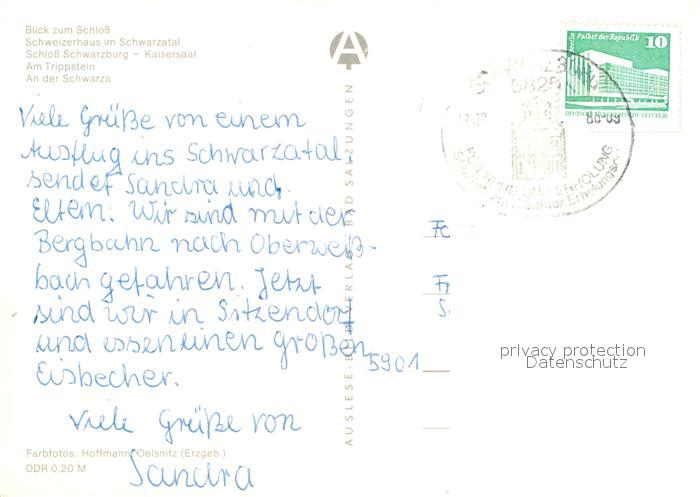 Blick zum Schloß
Schweizerhaus im Schwarzatal
Schloß Schwarzburg – Kaisersaal
Am Trippstein
An der Schwarza
Viele Grüße von einem
Ausflug ins Schwarzatal
sendet Sandra und
Eltern. Wir sind mit der
Bergbahn nach Oberweß-
bach gefahren. Jetzt
sind wir in Sitzendorf
und essen einen großen
Eisbecher.
Viele Grüße von
Sandra
Farbfotos: Hoffmann, Oelsnitz (Erzgeb.)
DDR 0,20 M
A
AUSLESE-BILDER-VERLAG BAD SALZUNGEN
Berlin Palast der Republik 10
DEUTSCHE DEMOKRATISCHE REPUBLIK
6825
80-09
RUHE UND ERHOLUNG
5901
privacy protection
Datenschutz